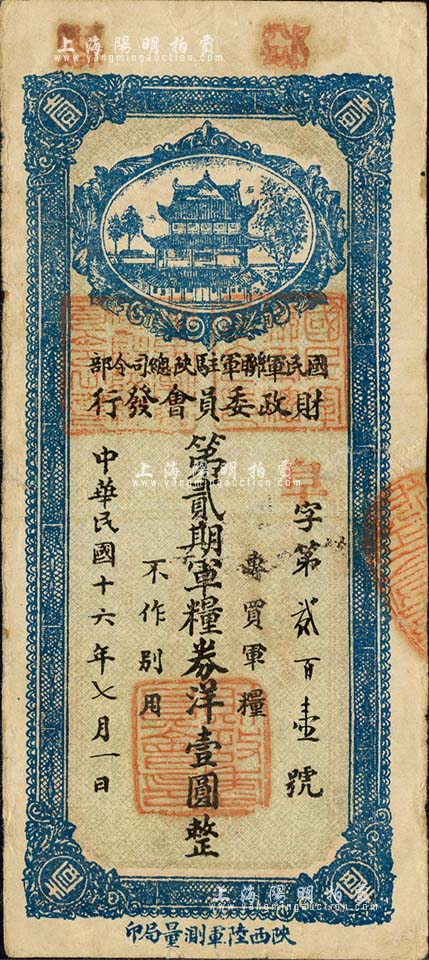 上海陽明拍賣
www.yangmingauction.com
壹 壹
國民軍聯軍駐陝總司令部
財政委員會發行
字第貳百壹號
專買軍糧
第貳期軍糧券洋壹圓整
不作別用
中華民國十六年七月一日
上海陽明拍賣
www.yangmingauction.com
上海陽明拍賣
www.yangmingauction.com
壹 壹
陝西陸軍測量局印